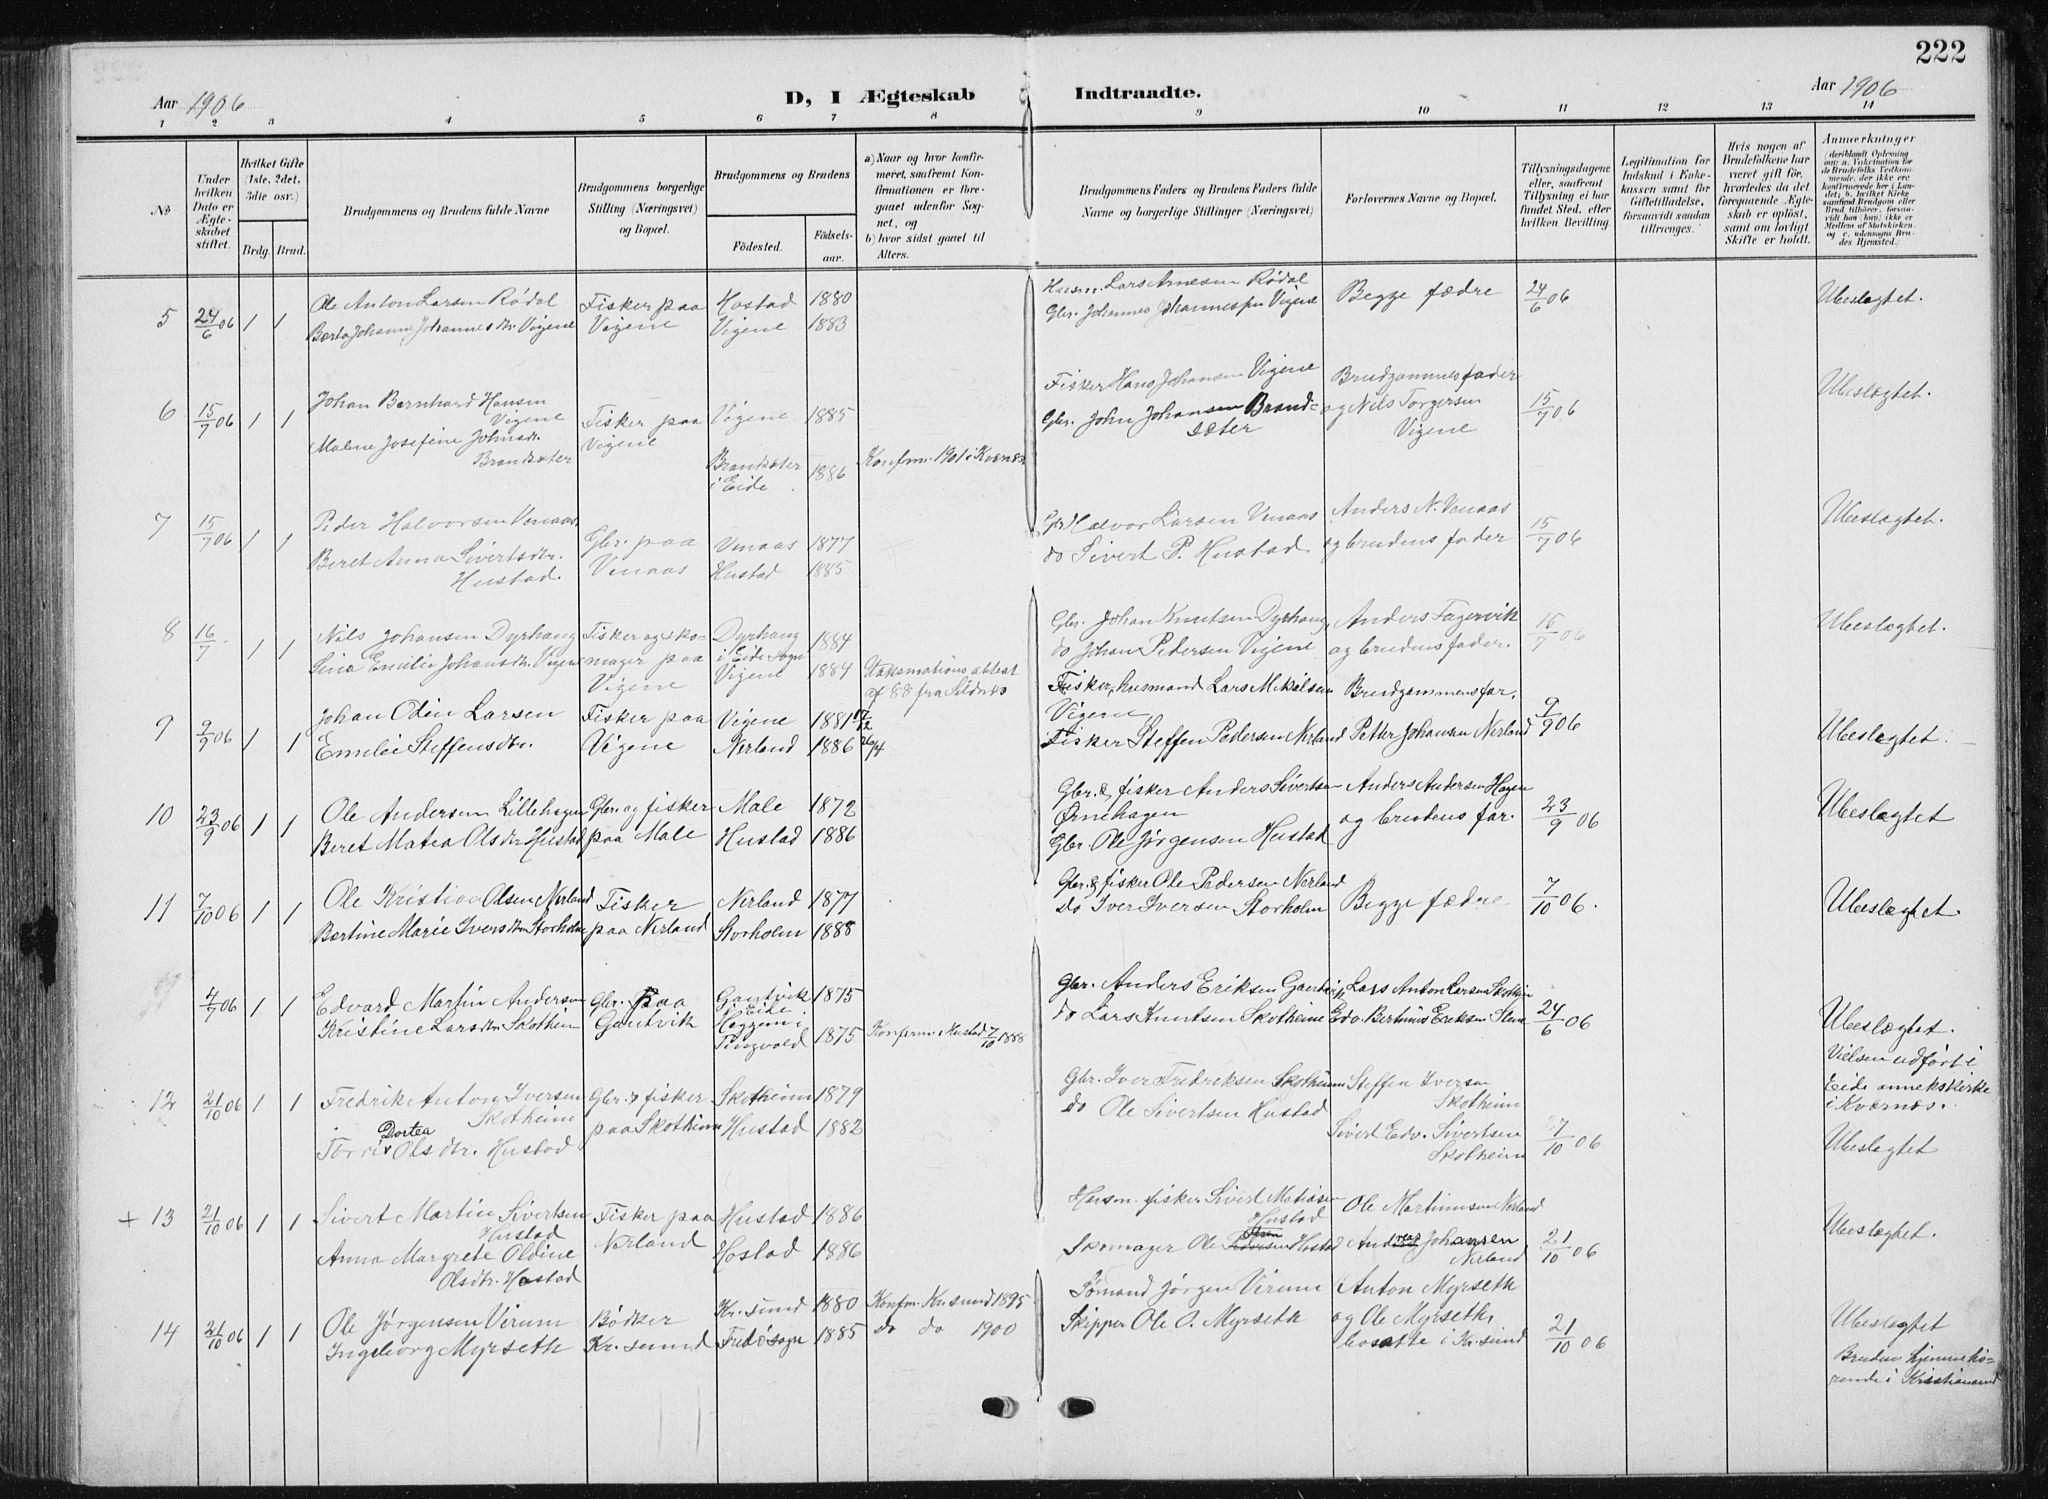 222
Aar 1906
D, I Ægteskab Indtraadte.
Aar 1906
1 2 3 4 5 6 7 8 9 10 11 12 13 14
No
Under hvilken Dato er Ægteskabet stiftet.
Hvilket Gifte (1ste, 2det, 3die osv.)
Brdg. Brud.
Brudgommens og Brudens fulde Navne
Brudgommens borgerlige Stilling (Næringsvei) og Bopæl.
Brudgommens og Brudens
Fødested.
Fødselsaar.
a) Naar og hvor konfirmeret, saafremt Konfirmationen er foregaaet udenfor Sognet, og
b) hvor sidst gaaet til Alters.
Brudgommens Faders og Brudens Faders fulde Navne og borgerlige Stillinger (Næringsvei)
Forlovernes Navne og Bopæl.
Tillysningsdagene eller, saafremt Tillysning ei har fundet Sted, efter hvilken Bevilling.
Legitimation for Indskud i Enkekassen samt for Giftetilladelse, forsaavidt saadan tiltrænges.
Hvis nogen af Brudefolkene har været gift før, hvorledes da det foregaaende Ægteskab er opløst, samt om lovligt Skifte er holdt.
Anmærkninger
(deriblandt Oplysning om: a. Vakcination for de Brudefolks Vedkommende, der ikke ere konfirmerede her i Landet; b. hvilket Kirkesamfund Brudgom eller Brud tilhører, forsaavidt han (hun) ikke er Medlem af Statskirken, og c. udensogns Brudes Hjemsted.)
5 24/6 06 1 1 Ole Anton Larsen Rødal Fisker paa Hostad 1880 Husm. Lars Arnesen Rødal Begge fædre 24/6 06 Ubeslægtet.
Berte Johanne Johannesdtr. Vigene Vigene Vigene 1883 Gbr. Johannes Johannessen Vigene
6 15/7 06 1 1 Johan Bernhard Hansen Vigene Fisker paa Vigene 1885 Fisker Hans Johansen Vigene Brudgommens fader 15/7 06 Ubeslægtet.
Malene Josefine Johnsdtr. Brandsæter Vigene Brandsæter i Eide 1886 Konfirm. 1901 i Kvernes Gbr. John Johansen Brandsæter og Nils Torgersen Vigene
7 15/7 06 1 1 Peder Halvorsen Venaas Gbr. paa Venaas 1877 Gbr. Halvor Larsen Venaas Anders N. Venaas 15/7 06 Ubeslægtet.
Beret Anna Sivertsdtr. Hustad. Venaas Hustad 1885 do Sivert P. Hustad og brudens fader
8 16/7 1 1 Nils Johansen Dyrhaug Fisker og sko- Dyrhaug i Eide Sogn 1884 Gbr. Johan Knutsen Dyrhaug Anders Fagervik 15/7 06 Ubeslægtet.
Sina Emilie Johansdtr. Vigene mager paa Vigene Vigene 1884 Vaksinationsattest af 88 fra do Johan Pedersen Vigene og brudens fader.
9 9/9 06 1 1 Johan Odin Larsen Fisker paa Vigene 1881 17/12 Fisker, husmand Lars Mikalsen Vigene Brudgommens far, 9/9 06 Ubeslægtet.
Emelie Steffensdtr. Vigene Nerland 1886 26/4 Fisker Steffen Pedersen Nerland Petter Johansen Nerland
10 23/9 06 1 1 Ole Andersen Lillehagen Gbr. og fisker Male 1872 Gbr. & fisker Anders Sivertsen Ørnehagen Anders Andersen Hagen 23/9 06 Ubeslægtet
Beret Matea Olsdtr Hustad paa Male Hustad 1886 Gbr. Ole Jørgensen Hustad og brudens far.
11 7/10 06 1 1 Ole Kristian Olsen Nerland Fisker Nerland 1877 Gbr. & fisker Ole Pedersen Nerland Begge fædre 7/10 06. Ubeslægtet.
Bertine Marie Iversdtr. Storholm paa Nerland Storholm 1888 do Iver Iversen Storholm
4/7 06 1 1 Edvard Martin Andersen Gbr. paa Gautvik i Eide 1875 Gbr. Anders Eriksen Gautvik Lars Anton Larsen Skotheim 24/6 06 Ubeslægtet.
Kristine Larsdtr. Skotheim Gautvik Heggem i Tingvold 1875 Konferm. i Hustad 7/10 1888 do Lars Knutsen Skotheim Edv. Bertinus Eriksen Stene
Vielsen udført i Eide annekskirke i Kvernes.
12 21/10 06 1 1 Fredrik Anton Iversen Skotheim Gbr. & fisker Skotheim 1879 Gbr. Iver Fredriksen Skotheim Steffen Iversen Skotheim
Dortea
Torri Olsdtr. Hustad paa Skotheim Hustad 1882 do Ole Sivertsen Hustad Sivert Edv. Sivertsen Skotheim 7/10 06 Ubeslægtet
+ 13 21/10 06 1 1 Sivert Martin Sivertsen Hustad Fisker paa Hustad 1886 Husm. fisker Sivert Matiasen Hustad Ole Martinusen Nerland 21/10 06 Ubeslægtet.
Anna Margrete Oldine Olsdtr. Hostad Nerland Hostad 1886 Skomager Ole Hostad Andreas Johansen Nerland
14 21/10 06 1 1 Ole Jørgensen Virum Bødker Kr. sund 1880 Konfm. Kr. sund 1895 Sømand Jørgen Virum Anton Myrseth 21/10 06 Ubeslægtet
Ingeborg Myrseth Kr. sund Fredøsogn 1885 do do 1900 Skipper Ole O. Myrseth og Ole Myrseth, bosatte i Kr. sund
Bruden hjemmehørende i Kristiansund